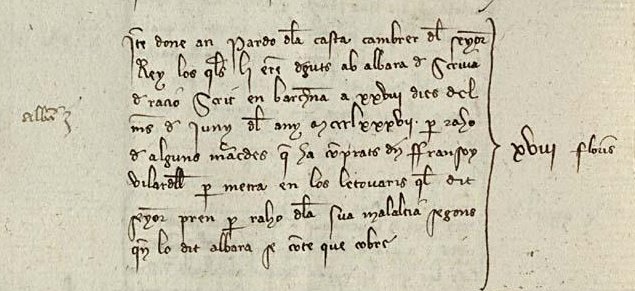 Ite done an Pardo dla casta cambrer dl senyor
Rey los qls li ere dguts ab albara d Scriva
d racio Scrit en barchna a xxviii dies del
mes d Juny dl any m ccc lxxxvii. p raho
d alguns mcades q ha coprats dn ffransoy
p metra en los letovaris ql dit
senyor pren p raho dla sua malaltia segons
qn lo dit albara se cote que cobre
albara
xviii florins